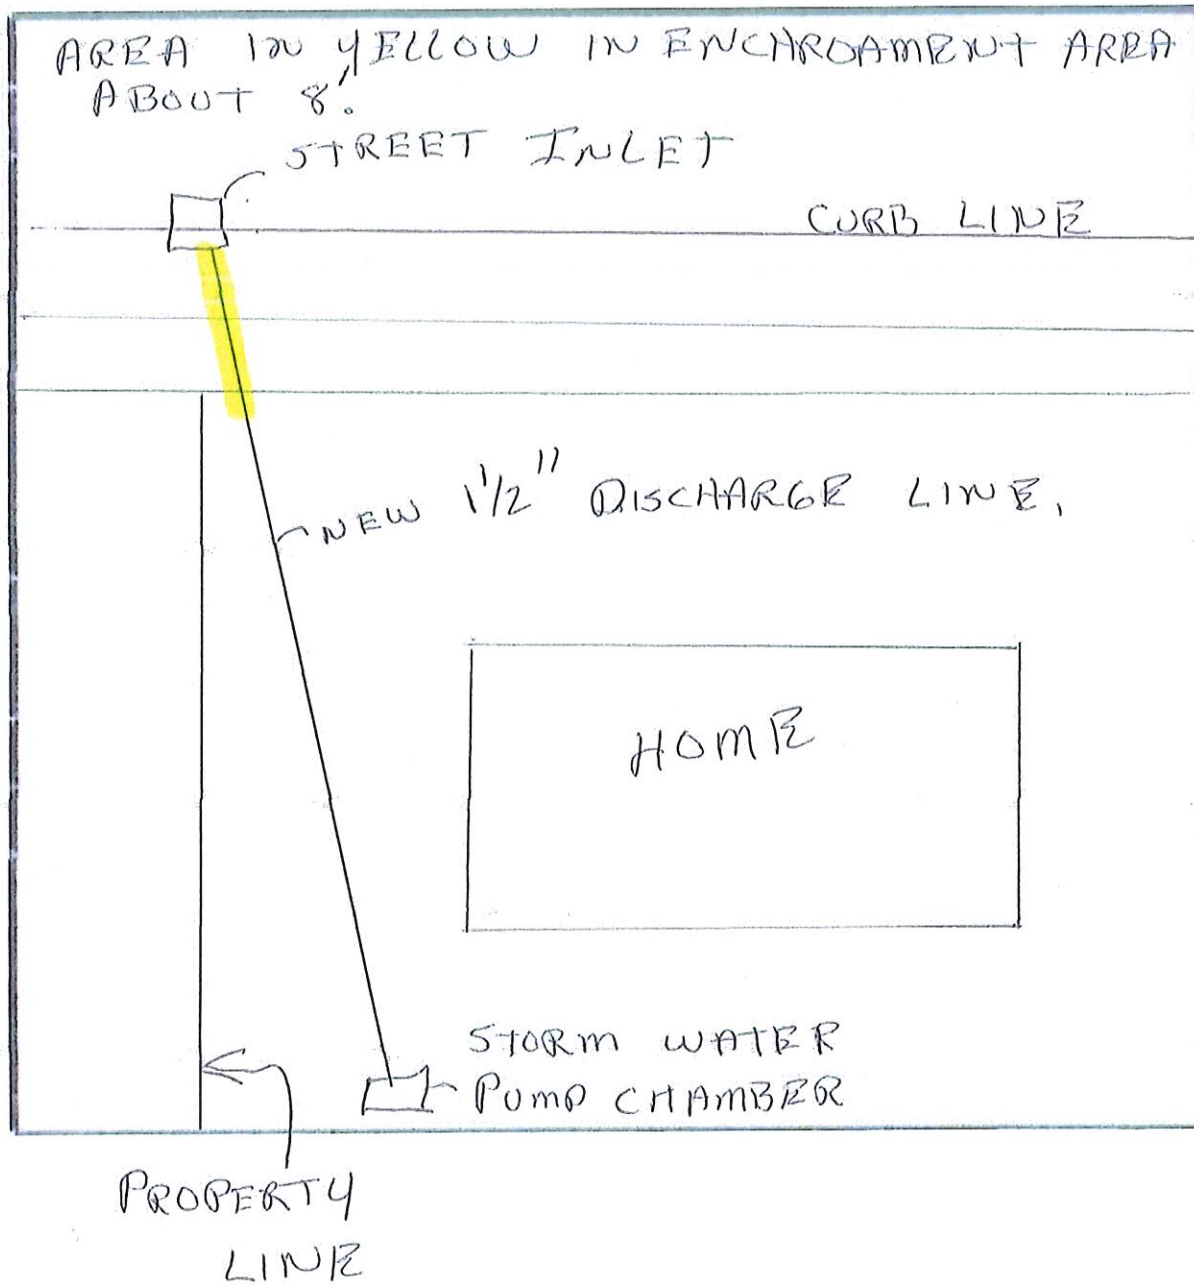 AREA IN YELLOW IN ENCHROAMENT AREA
ABOUT 8'.
STREET INLET
CURB LINE
NEW 1 1/2" DISCHARGE LINE.
HOME
STORM WATER
PUMP CHAMBER
PROPERTY
LINE